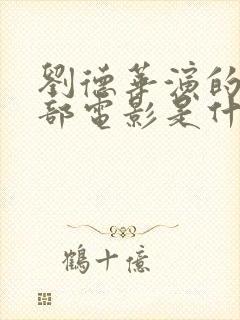 劉德華演的
部電影是什
鶴十億